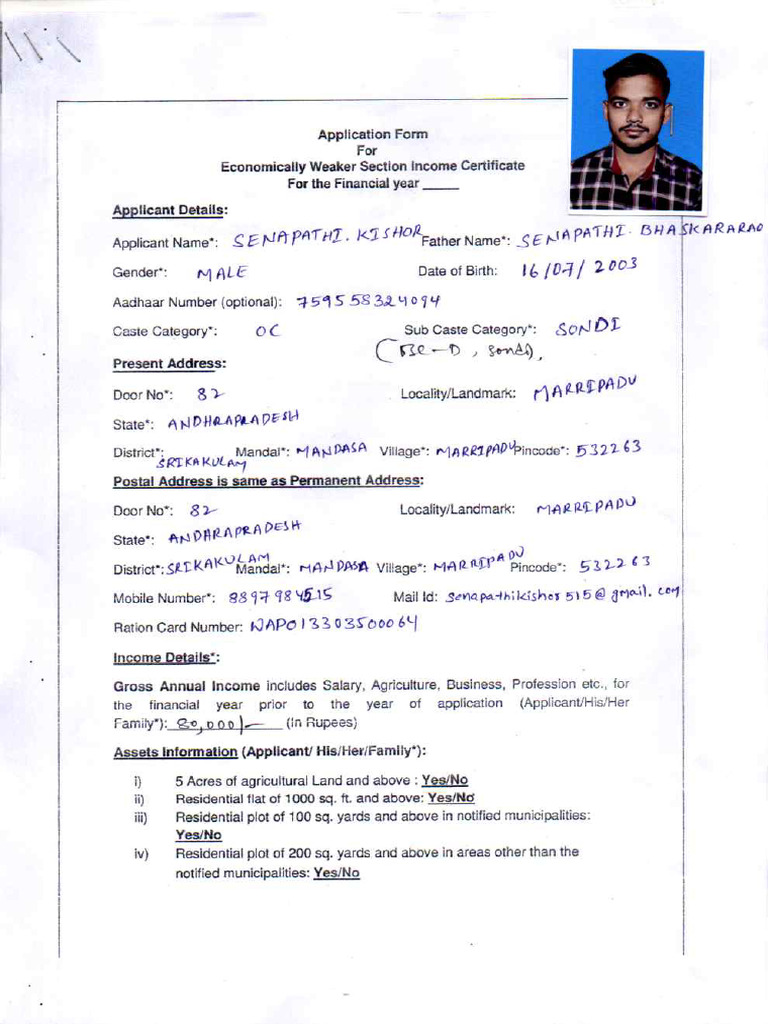 Application Form
For
Economically Weaker Section Income Certificate
For the Financial year _____
Applicant Details:
Applicant Name*: SENAPATHI. KISHOR Father Name*: SENAPATHI. BHASKARARAO
Gender*: MALE Date of Birth: 16/07/2003
Aadhaar Number (optional): 759558324094
Caste Category*: OC Sub Caste Category*: SONDI
(BC-D, sondi),
Present Address:
Door No*: 82 Locality/Landmark: MARRIPADU
State*: ANDHRAPRADESH
District*: SRIKAKULAM Mandal*: MANDASA Village*: MARRIPADU Pincode*: 532263
Postal Address is same as Permanent Address:
Door No*: 82 Locality/Landmark: MARRIPADU
State*: ANDHRAPRADESH
District*: SRIKAKULAM Mandal*: MANDASA Village*: MARRIPADU Pincode*: 532263
Mobile Number*: 8897984515 Mail Id: senapathikishor515@gmail.com
Ration Card Number: WAP013303500064
Income Details*:
Gross Annual Income includes Salary, Agriculture, Business, Profession etc., for
the financial year prior to the year of application (Applicant/His/Her
Family*): 80,000/- (In Rupees)
Assets Information (Applicant/ His/Her/Family*):
i) 5 Acres of agricultural Land and above : Yes/No
ii) Residential flat of 1000 sq. ft. and above: Yes/No
iii) Residential plot of 100 sq. yards and above in notified municipalities:
Yes/No
iv) Residential plot of 200 sq. yards and above in areas other than the
notified municipalities: Yes/No